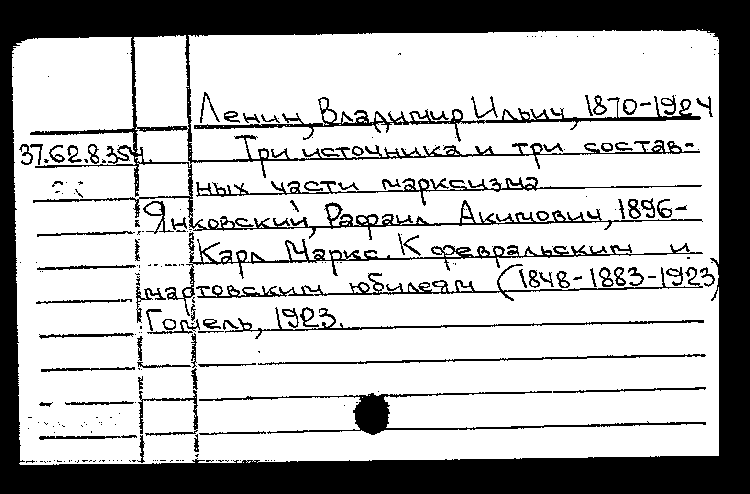 Ленин, Владимир Ильич, 1870-1924
37.62.8.354. Три источника и три состав-
ных части марксизма
Янковский, Рафаил Акимович, 1896-
Карл Маркс. К февральским и
мартовским юбилеям (1848-1883-1923)
Гомель, 1923.